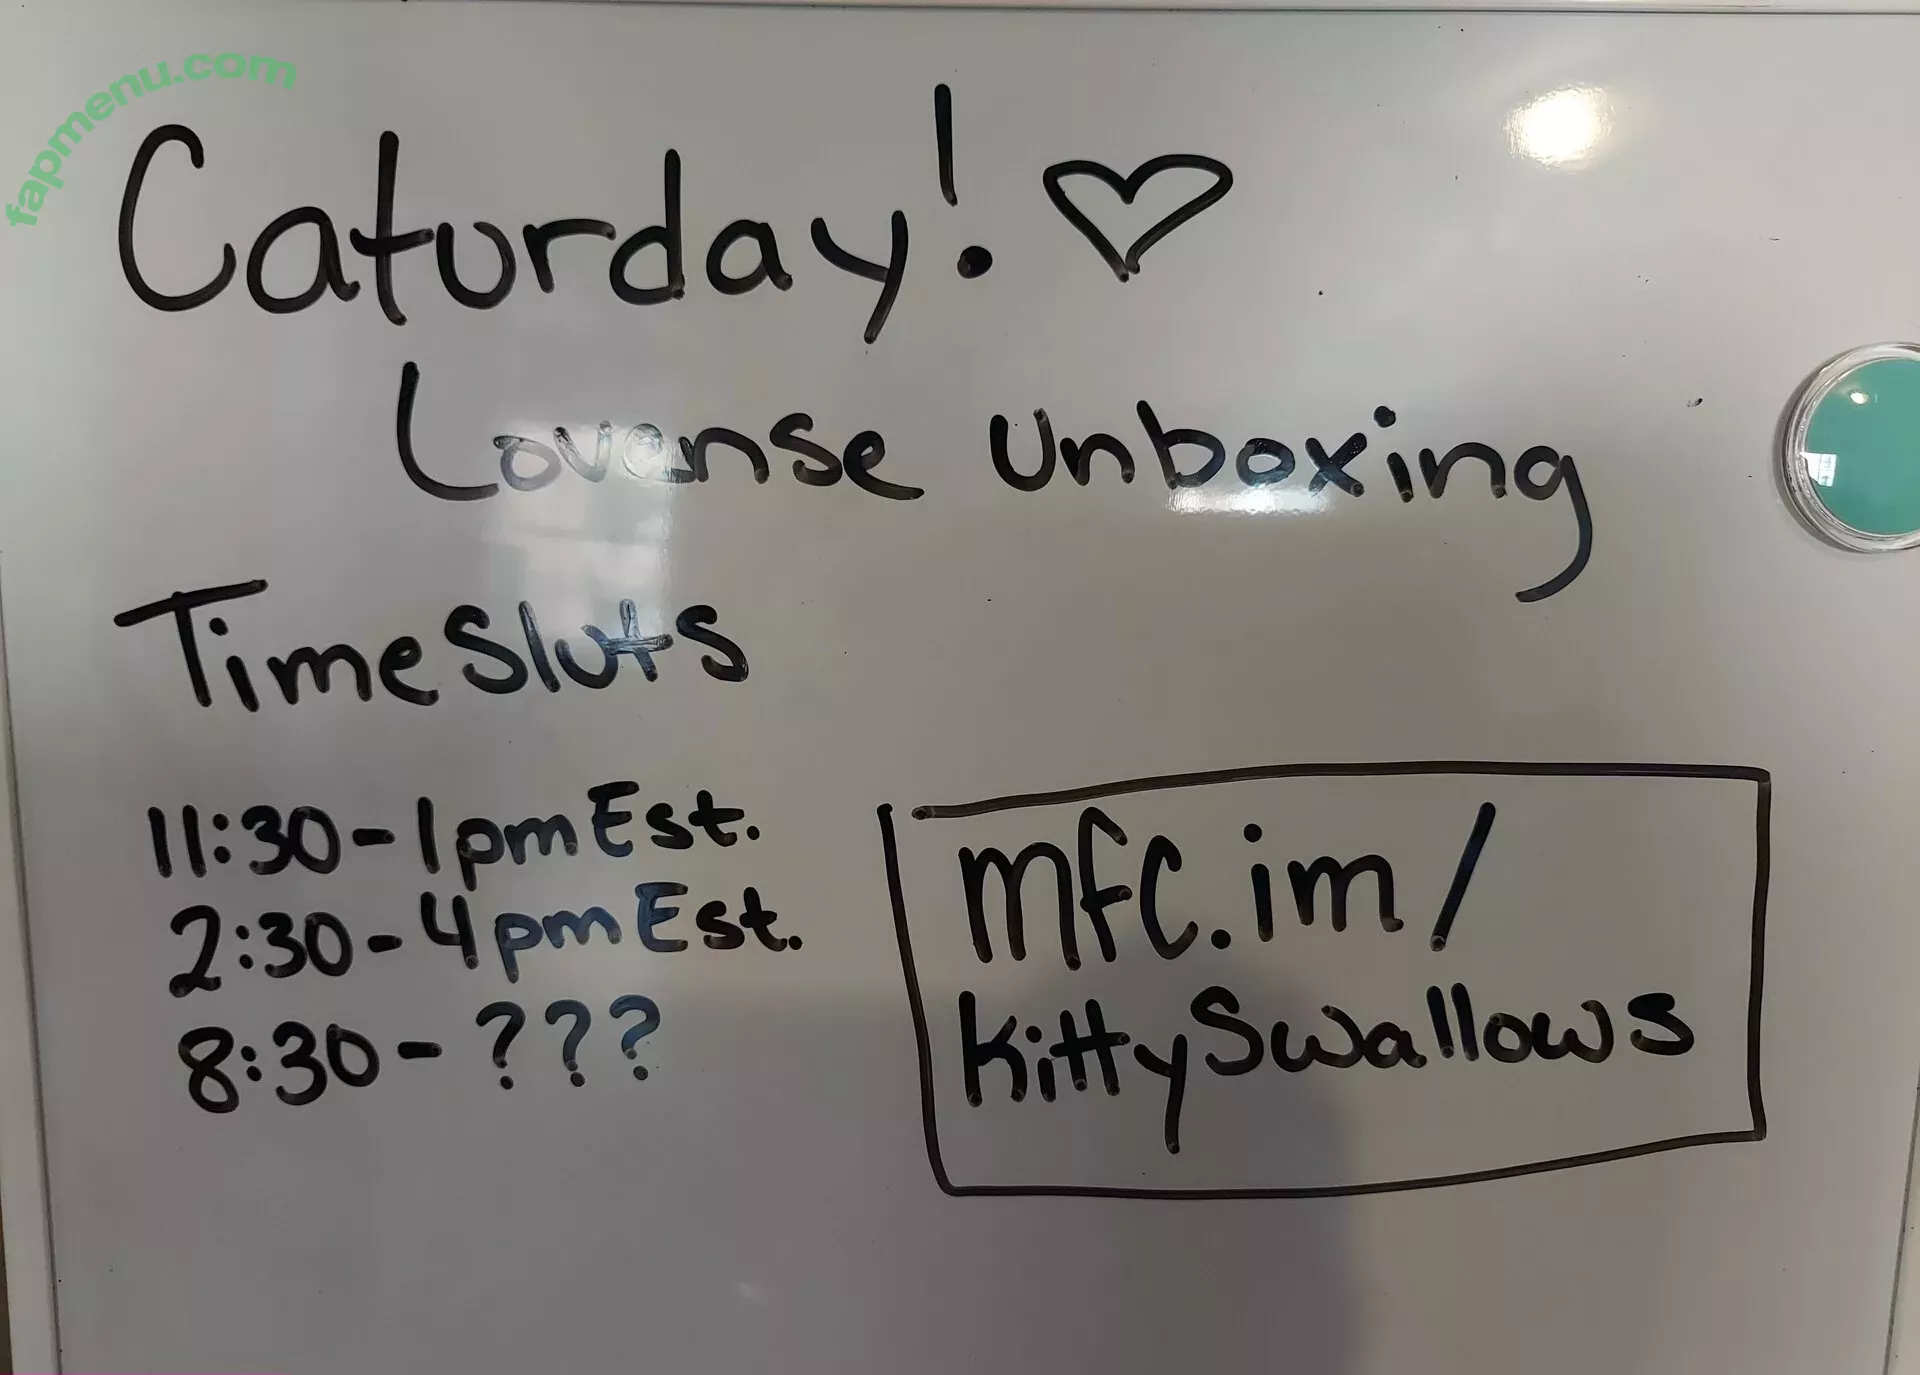 fapmenu.com
Caturday! ♡
Lovense Unboxing
TimeSluts
11:30-1pm Est.
2:30-4pm Est.
8:30-???
mfc.im/
KittySwallows